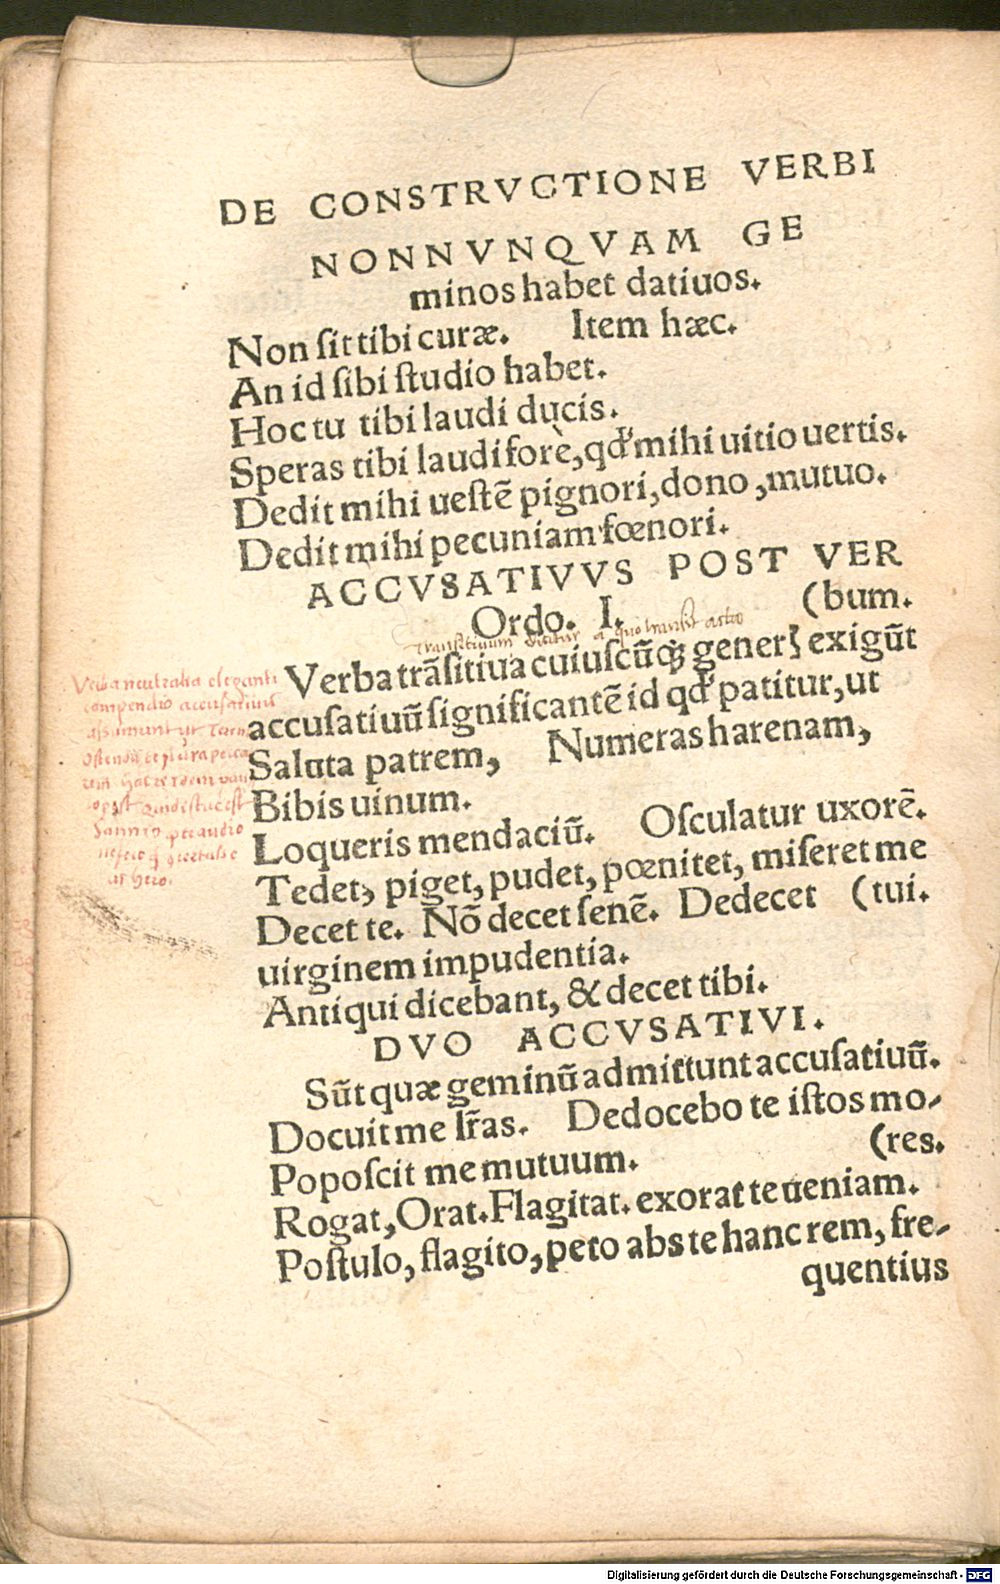 DE CONSTRVCTIONE VERBI
NONNVNQVAM GE
minos habet datiuos.
Non ſit tibi curæ. Item hæc.
An id ſibi ſtudio habet.
Hoc tu tibi laudi ducis.
Speras tibi laudi forè, qđ mihi uitio uertis.
Dedit mihi ueſtē pignori, dono, mutuo.
Dedit mihi pecuniam fœnori.
ACCVSATIVVS POST VER
Ordo. I. (bum.
Transitivum dicitur a quo transit actio
Verba trãſitiua cuiuſcũqꝫ generꝭ exigũt
accuſatiuũ ſignificantẽ id qđ patitur, ut
Saluta patrem, Numeras harenam,
Bibis uinum.
Loqueris mendaciũ. Oſculatur uxorẽ.
Tedet, piget, pudet, pœnitet, miſeret me
Decet te. Nõ decet ſenẽ. Dedecet (tui.
uirginem impudentia.
Antiqui dicebant, & decet tibi.
DVO ACCVSATIVI.
Sũt quæ geminũ admittunt accuſatiuũ.
Docuit me lr̃as. Dedocebo te iſtos mo-
Popoſcit me mutuum. (res.
Rogat, Orat. Flagitat. exorat te ueniam.
Poſtulo, flagito, peto abs te hanc rem, fre-
quentius
Verba neutralia eleganti
compendio accusativus
assumunt ut Teren
Digitalisierung gefördert durch die Deutsche Forschungsgemeinschaft - DFG